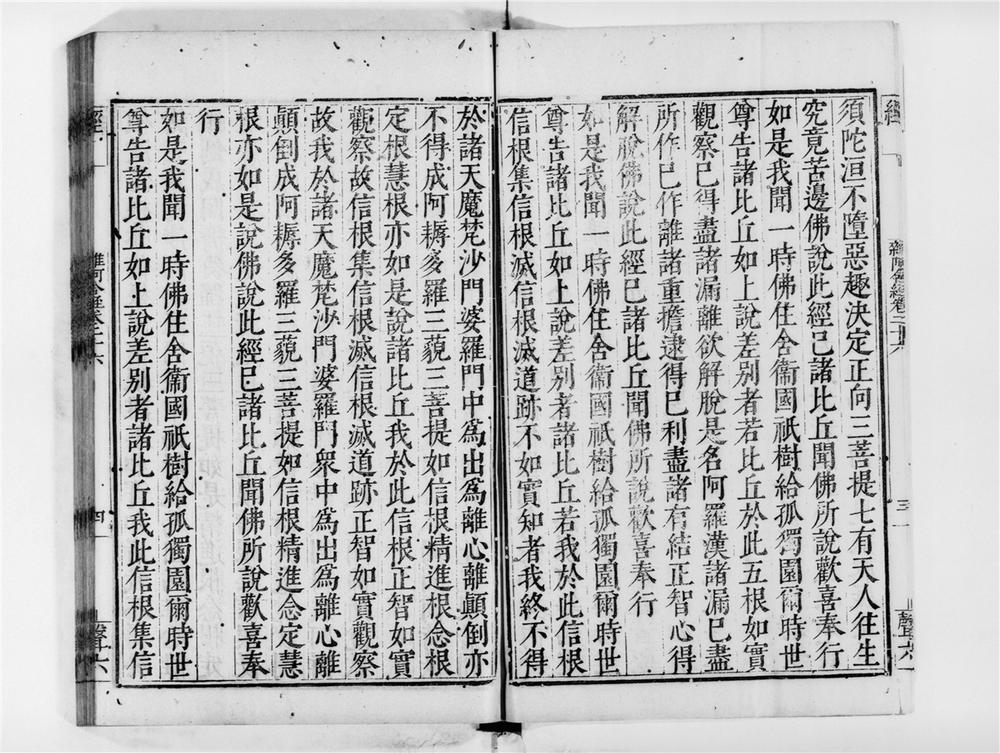 須陀洹不墮惡趣決定正向三菩提七有天人往生
究竟苦邊佛說此經已諸比丘聞佛所說歡喜奉行
如是我聞一時佛住舍衞國祇樹給孤獨園爾時世
尊告諸比丘如上說差別者若比丘於此五根如實
觀察已得盡諸漏離欲解脫是名阿羅漢諸漏已盡
所作已作離諸重擔逮得已利盡諸有結正智心得
解脫佛說此經已諸比丘聞佛所說歡喜奉行
如是我聞一時佛住舍衞國祇樹給孤獨園爾時世
尊告諸比丘如上說差別者諸比丘若我於此信根
信根集信根滅信根滅道跡不如實知者我終不得
於諸天魔梵沙門婆羅門中爲出爲離心離顚倒亦
不得成阿耨多羅三藐三菩提如信根精進根念根
定根慧根亦如是說諸比丘我於此信根正智如實
觀察故信根集信根滅信根滅道跡正智如實觀察
故我於諸天魔梵沙門婆羅門衆中爲出爲離心離
顚倒成阿耨多羅三藐三菩提如信根精進念定慧
根亦如是說佛說此經已諸比丘聞佛所說歡喜奉
行
如是我聞一時佛住舍衞國祇樹給孤獨園爾時世
尊告諸比丘如上說差別者諸比丘我此信根集信